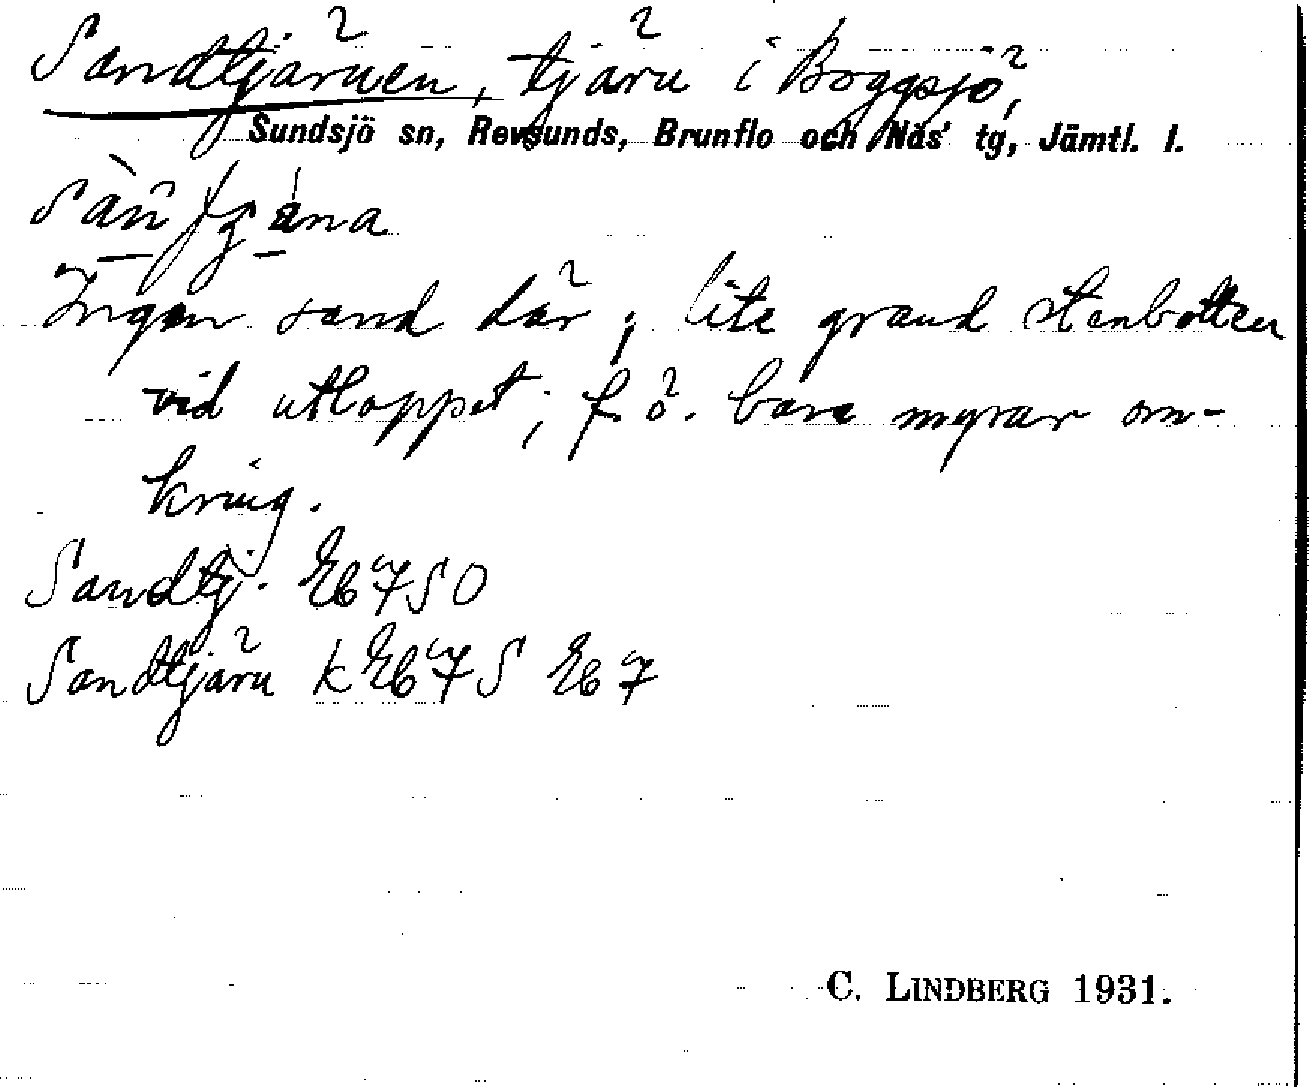 Sandtjärnen, tjärn i Boggsjö,
Sundsjö sn, Revsunds, Brunflo och Näs' tg, Jämtl. l.
Ingen sand där; lite grand stenbotten
vid utloppet; f. ö. bara myrar om-
kring.
Sandtj. Eb 7 SO
Sandtjärn k Eb 7 S Eb 7
C. LINDBERG 1931.